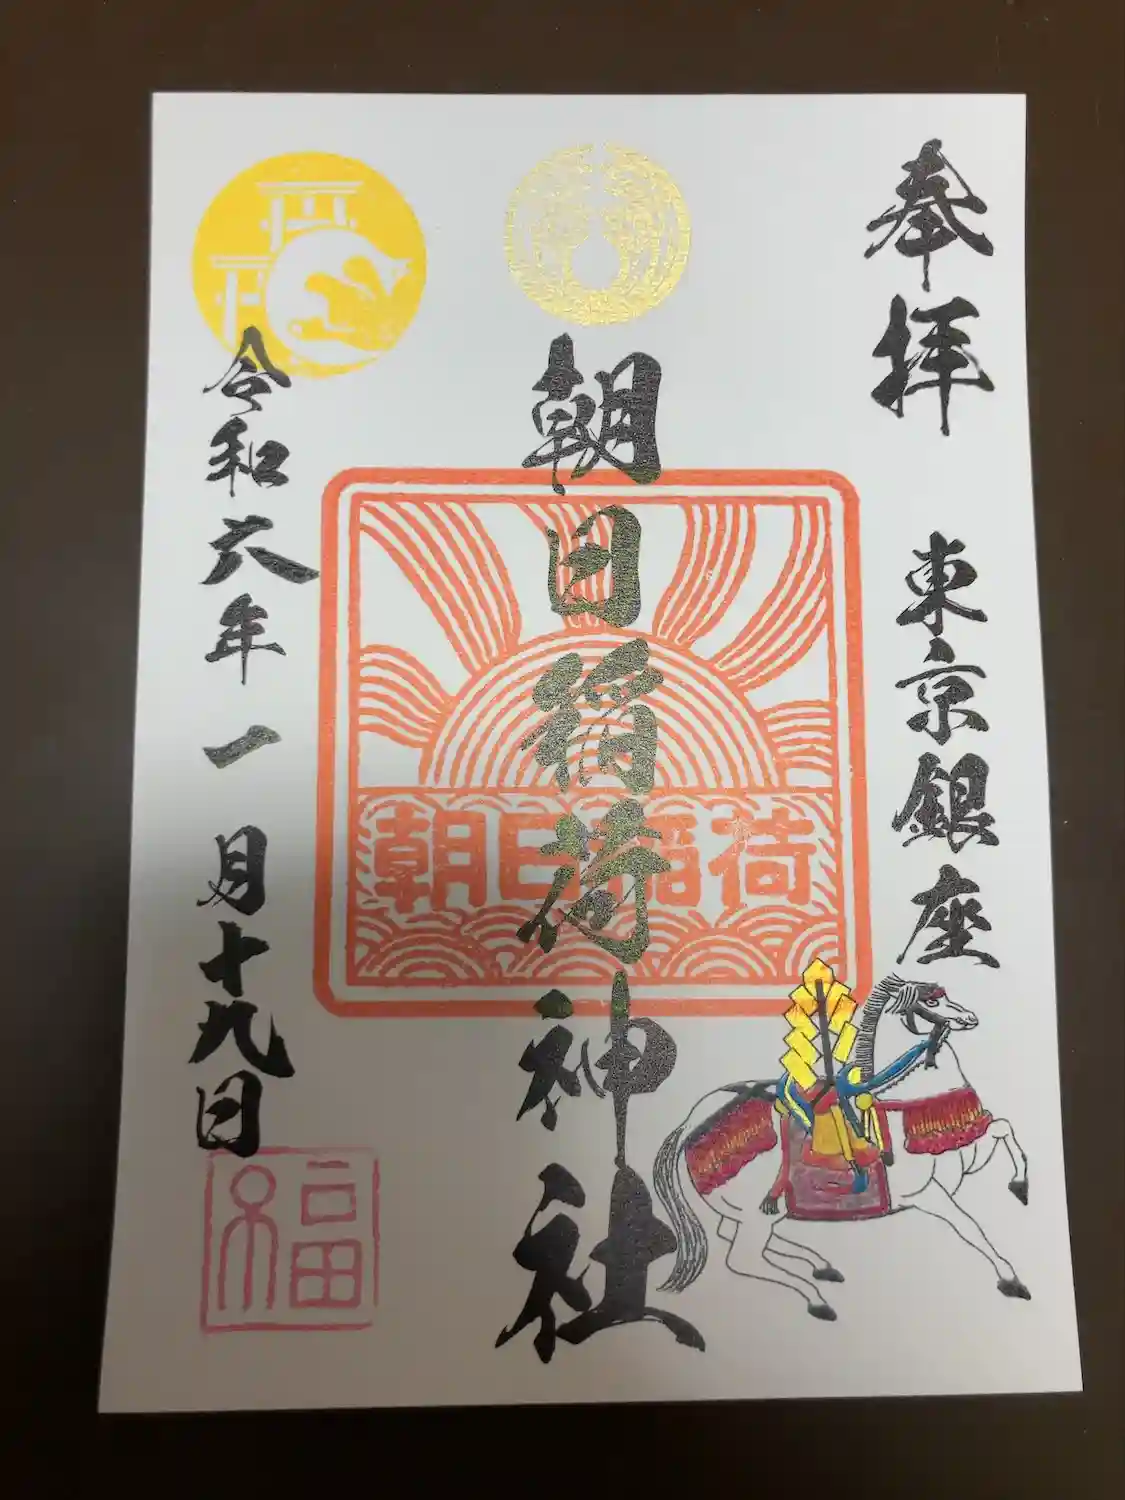 奉拝
東京銀座
朝日稲荷神社
朝日稲荷
令和六年一月十九日
福